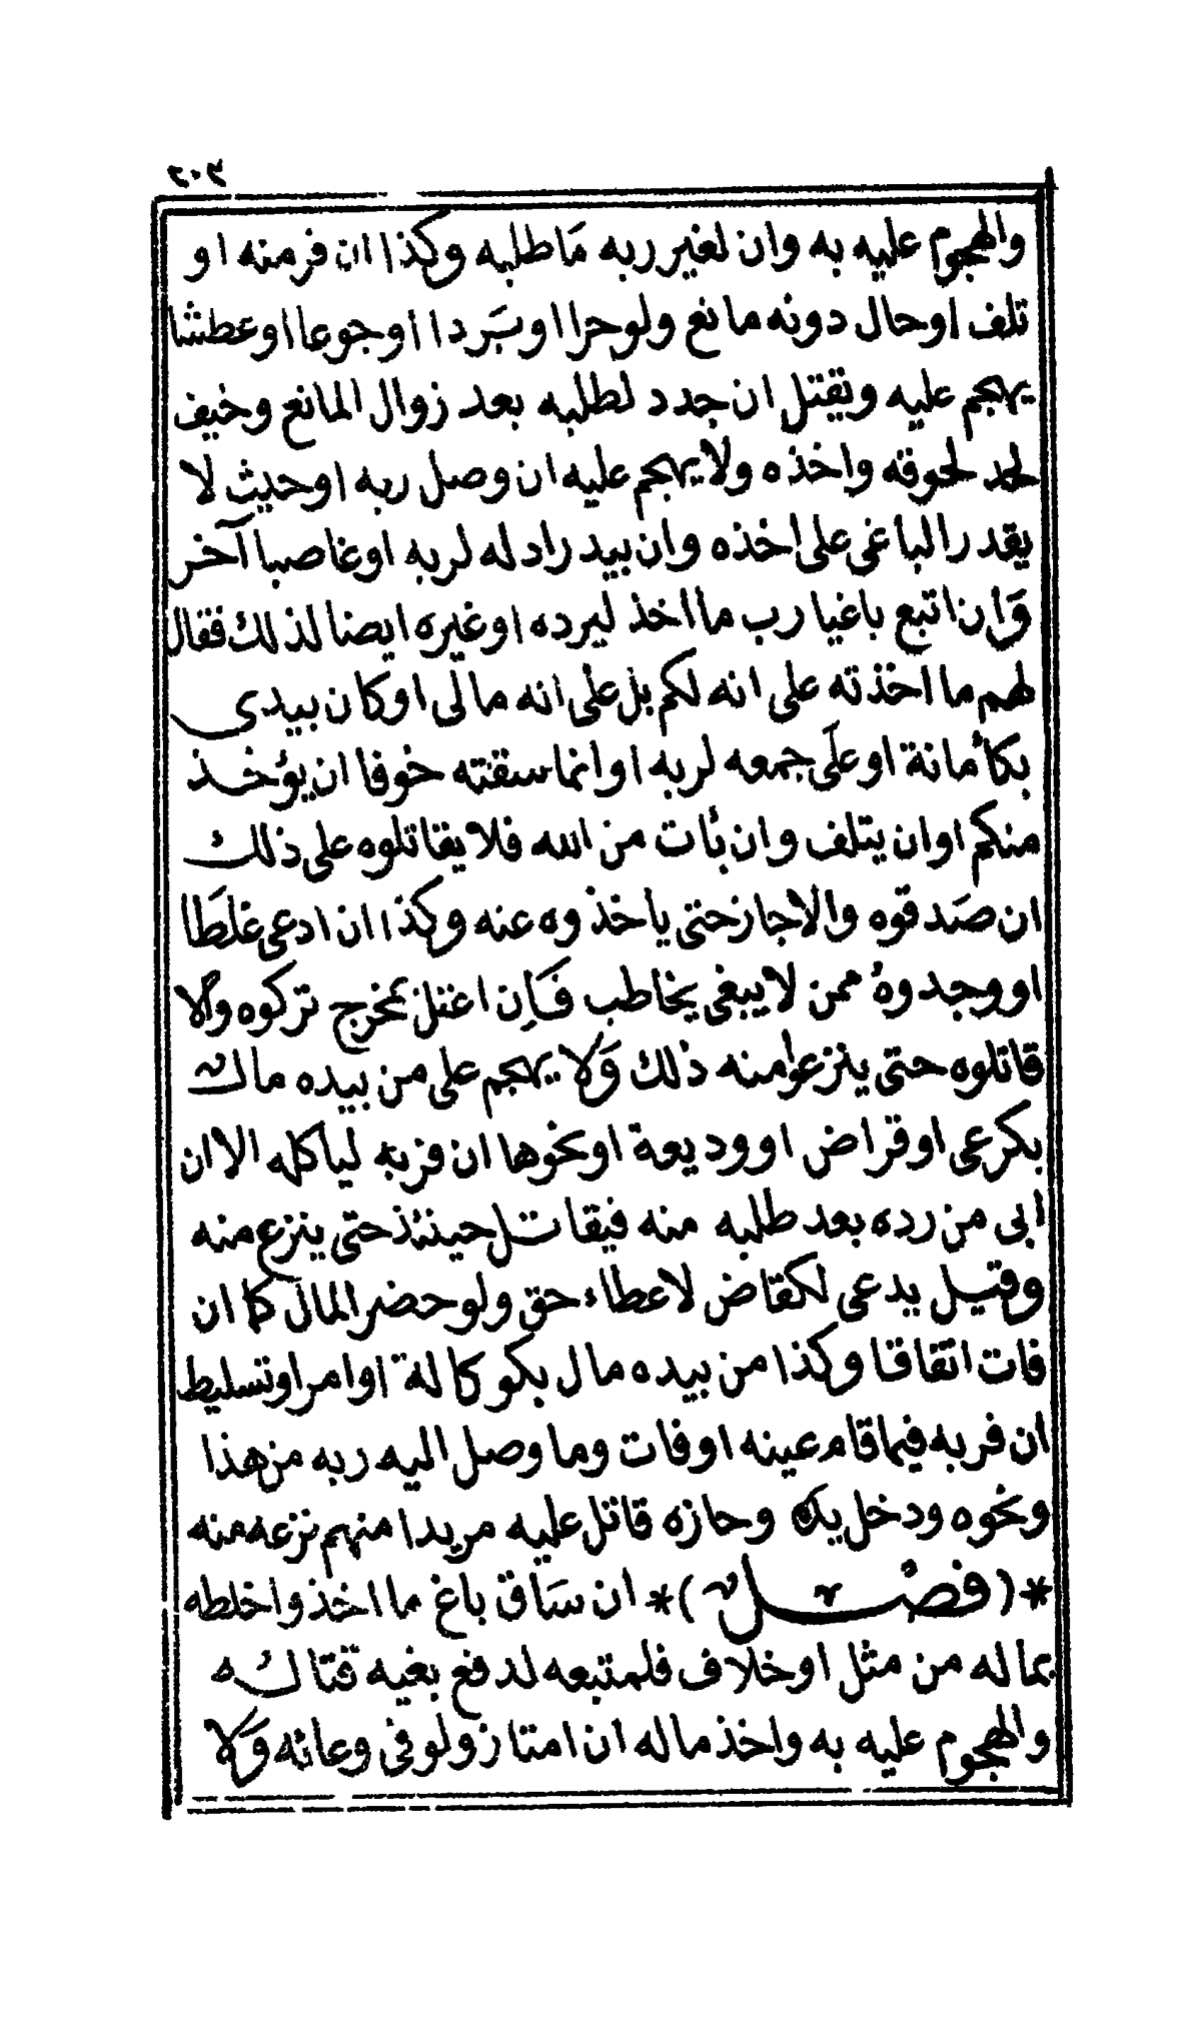 ٢٠٣
والهجوم عليه به وان لغير ربه مَا طلبه وكذا ان فر منه او
تلف او حال دونه مانع ولو حرا او بَردا او جوعا او عطشا
يهجم عليه ويقتل ان جدد لطلبه بعد زوال المانع وخيف
لحد لحوقه واخذه ولا يهجم عليه ان وصل ربه او حيث لا
يقدر الباغى على اخذه وان بيد راد له لربه او غاصبا آخر
وَان اتبع باغيا رب ما اخذ ليرده او غيره ايضا لذلك فقال
لهم ما اخذته على انه لكم بل على انه مالى او كان بيدى
بكأمانة او على جمعه لربه او انما سقته خوفا ان يؤخذ
منكم او ان يتلف وان تُات من الله فلا يقاتلوه على ذلك
ان صَدقوه والا جاز حتى ياخذوه عنه وكذا ان ادعى غلَطا
او وجدوهُ ممن لا يبغى يخاطب فَإن اعتل بمخرج تركوه وَالا
قاتلوه حتى ينزعوا منه ذلك وَلا يهجم على من بيده مال
بكرعى او قراض او وديعة او نحوها ان فر به لياكله الا ان
أبى من رده بعد طلبه منه فيقاتل حينئذ حتى ينزع منه
وقيل يدعى لكقاض لاعطاء حق ولو حضر المال كما ان
فات اتفاقا وكذا من بيده مال بكوكالة او امر او تسليط
ان فر به فيما قام عينه او فات وما وصل اليه ربه من هذا
ونحوه ودخل يده وحازه قاتل عليه مريدا منهم نزعه منه
*( فصل )* ان سَاق باغ ما اخذ واخلطه
بماله من مثل او خلاف فلمتبعه لدفع بغيه قتاله
والهجوم عليه به واخذ ماله ان امتاز ولو فى وعائه وَلا